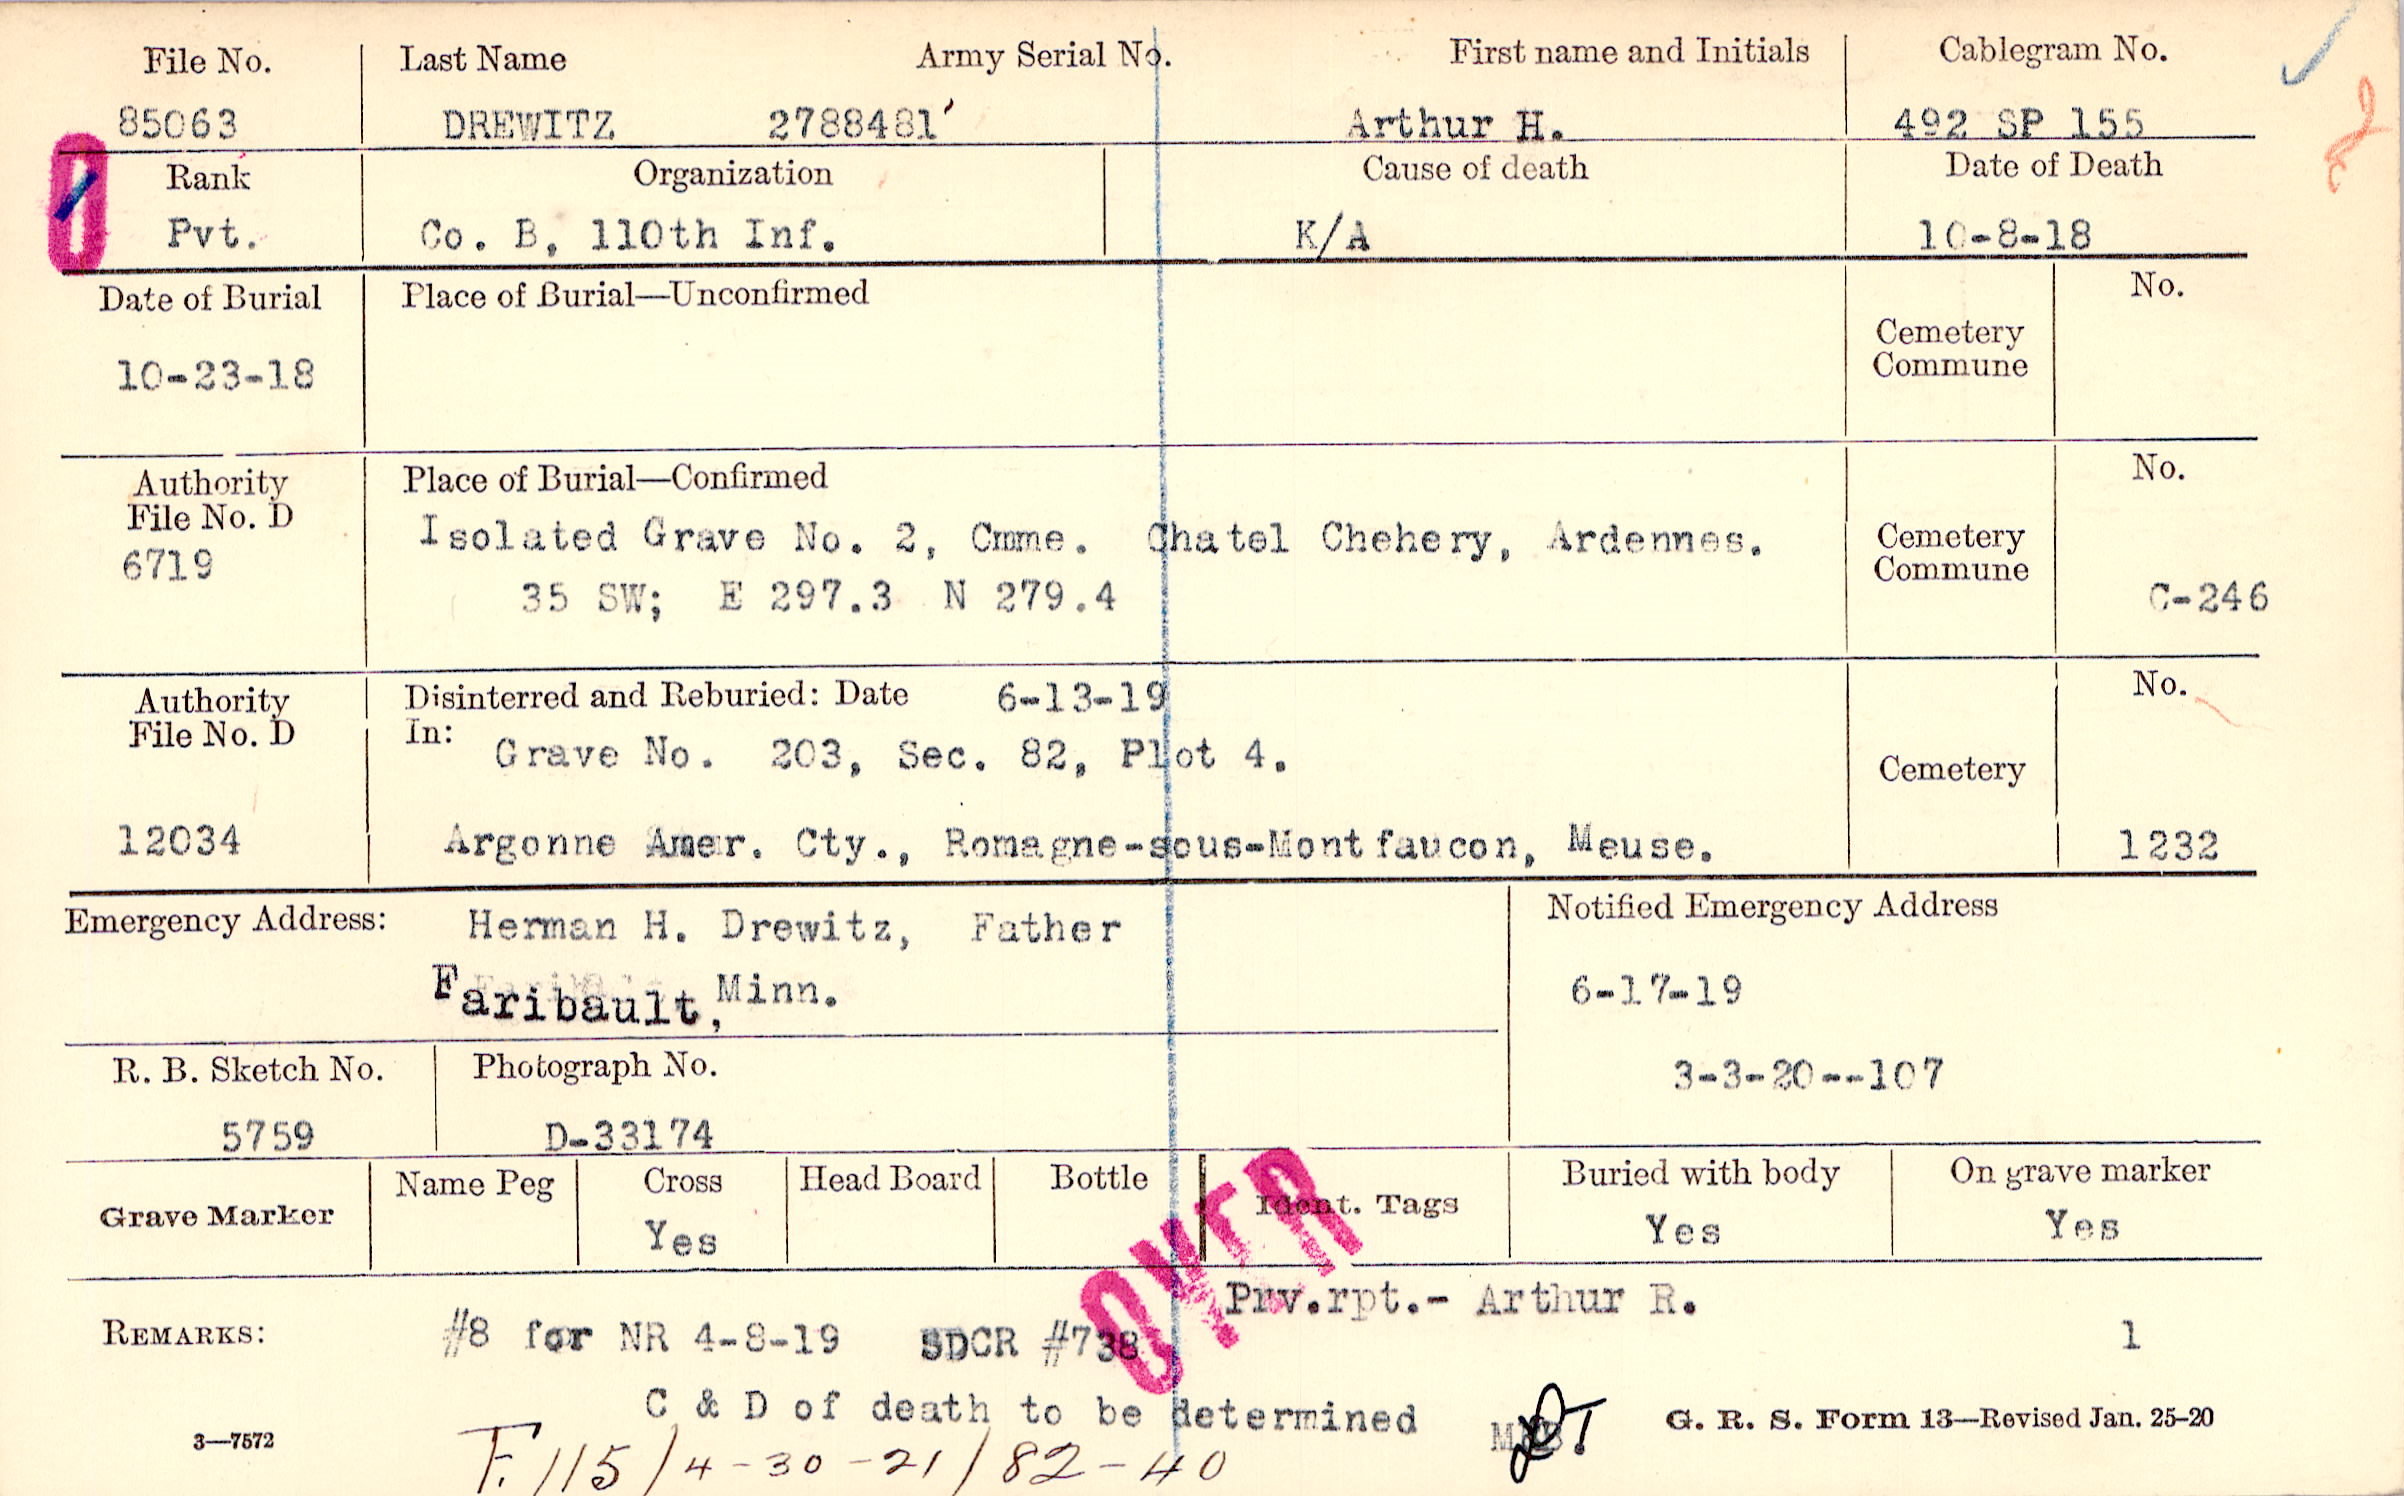 File No. Last Name Army Serial No. First name and Initials Cablegram No.
85063 DREWITZ 2788481 Arthur H. 492 SP 155
Rank Organization Cause of death Date of Death
Pvt. Co. B, 110th Inf. K/A 10-8-18
Date of Burial Place of Burial—Unconfirmed No.
10-23-18 Cemetery
Commune
Authority Place of Burial—Confirmed No.
File No. D Isolated Grave No. 2, Cmme. Chatel Chehery, Ardennes. Cemetery
6719 35 SW; E 297.3 N 279.4 Commune C-246
Authority Disinterred and Reburied: Date 6-13-19 No.
File No. D In: Grave No. 203, Sec. 82, Plot 4. Cemetery
12034 Argonne Amer. Cty., Romagne-sous-Montfaucon, Meuse. 1232
Emergency Address: Herman H. Drewitz, Father Notified Emergency Address
Faribault, Minn. 6-17-19
3-3-20--107
R. B. Sketch No. Photograph No.
5759 D-33174
Grave Marker Name Peg Cross Head Board Bottle Ident. Tags Buried with body On grave marker
Yes Yes Yes
OVER
Prv.rpt.- Arthur R.
REMARKS: #8 for NR 4-8-19 SDCR #738 1
C & D of death to be determined
3—7572 G. R. S. Form 13—Revised Jan. 25-20
F.115/4-30-21/82-40